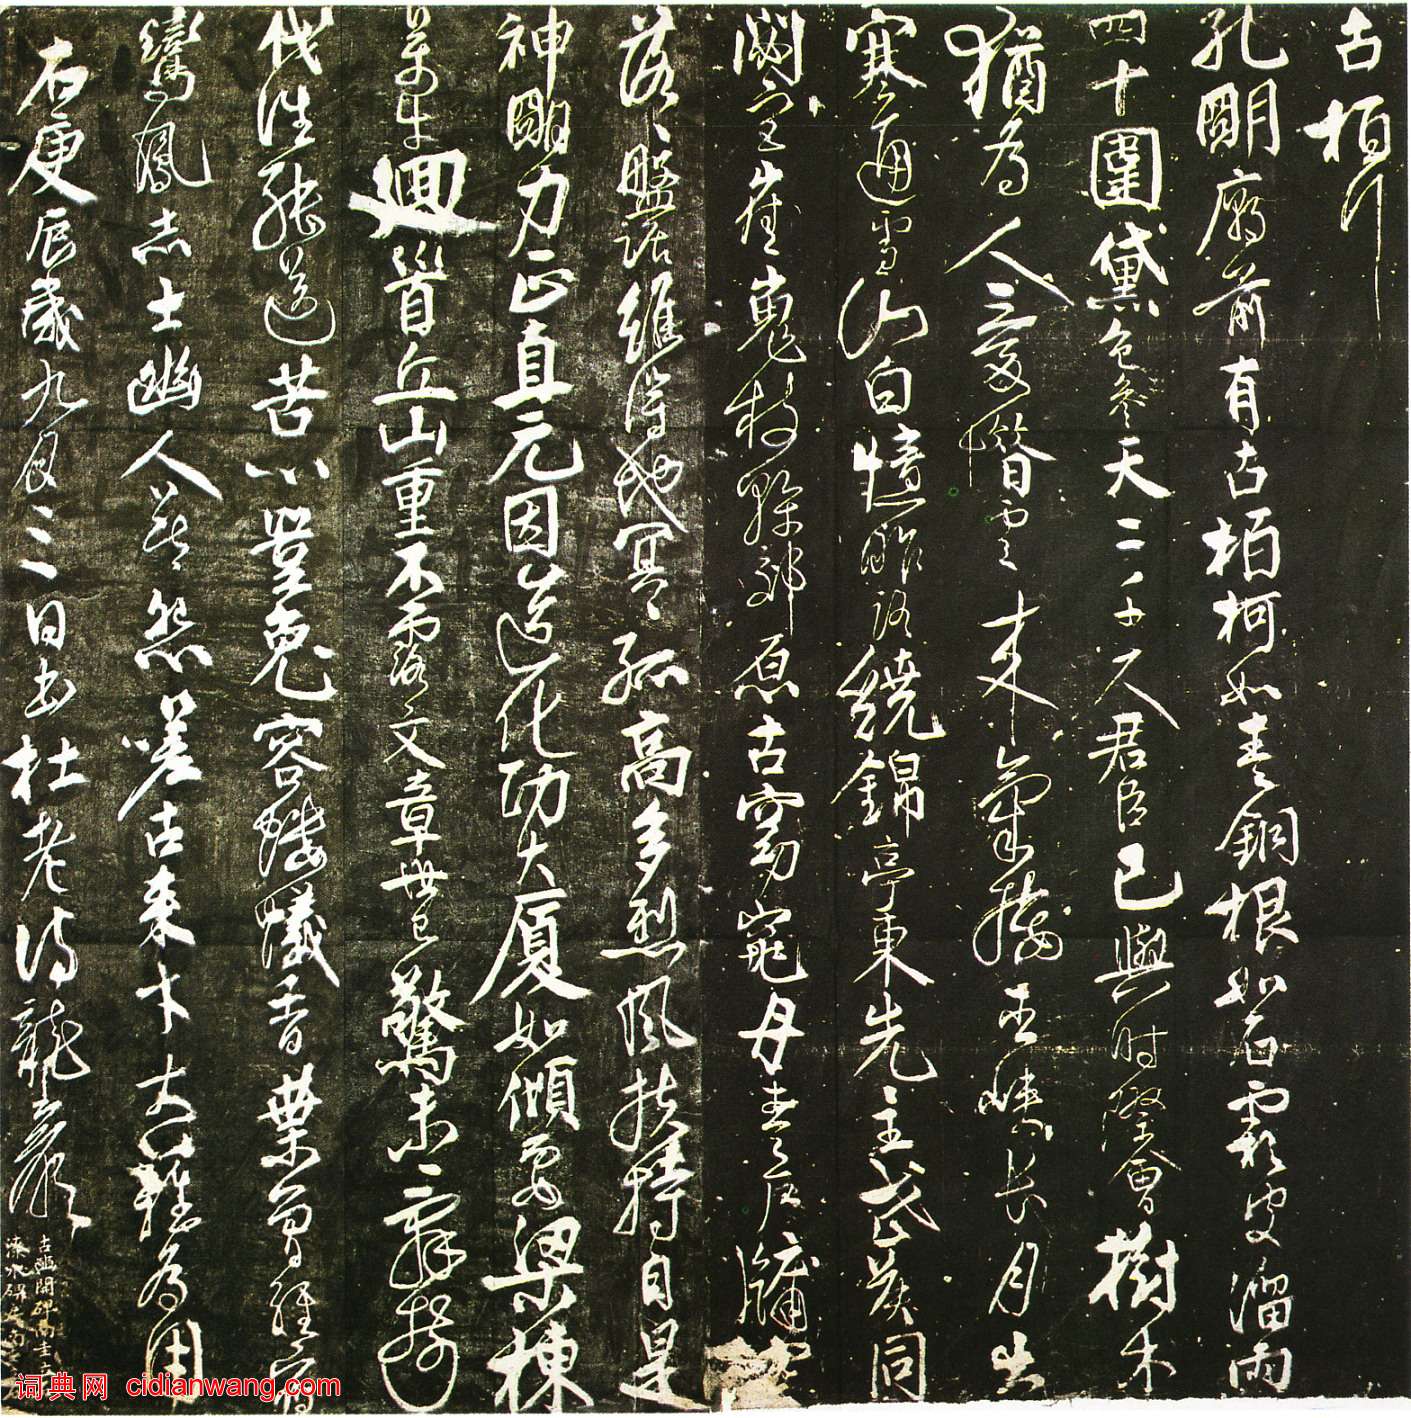 古柏行
孔明廟前有古柏柯如青銅根如石霜皮溜雨
四十圍黛色參天二千尺君臣已與時際會樹木
猶為人愛惜雲來氣接巫峽長月出
寒通雪山白憶昨路繞錦亭東先主武侯同
閟宮崔嵬枝幹郊原古窈窕丹青戶牖空
落落盤踞雖得地冥冥孤高多烈風扶持自是
神明力正直元因造化功大廈如傾要梁棟
萬牛迴首丘山重不露文章世已驚未辭剪
伐誰能送苦心豈免容螻蟻香葉曾經宿
鸞鳳志士幽人莫怨嗟古來才大難為用
右庚辰歲九月三日書杜老詩龍巖
词典网 cidianwang.com